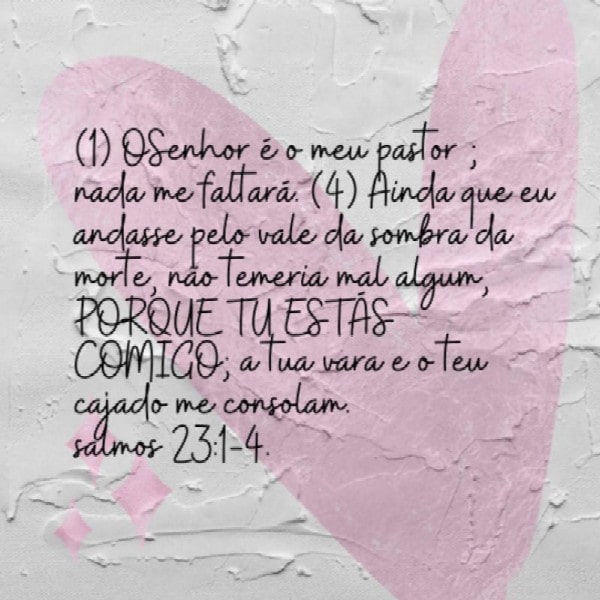 (1) OSenhor é o meu pastor ;
nada me faltará. (4) Ainda que eu
andasse pelo vale da sombra da
morte, não temeria mal algum,
PORQUE TU ESTÁS
COMIGO; a tua vara e o teu
cajado me consolam.
salmos 23:1-4.